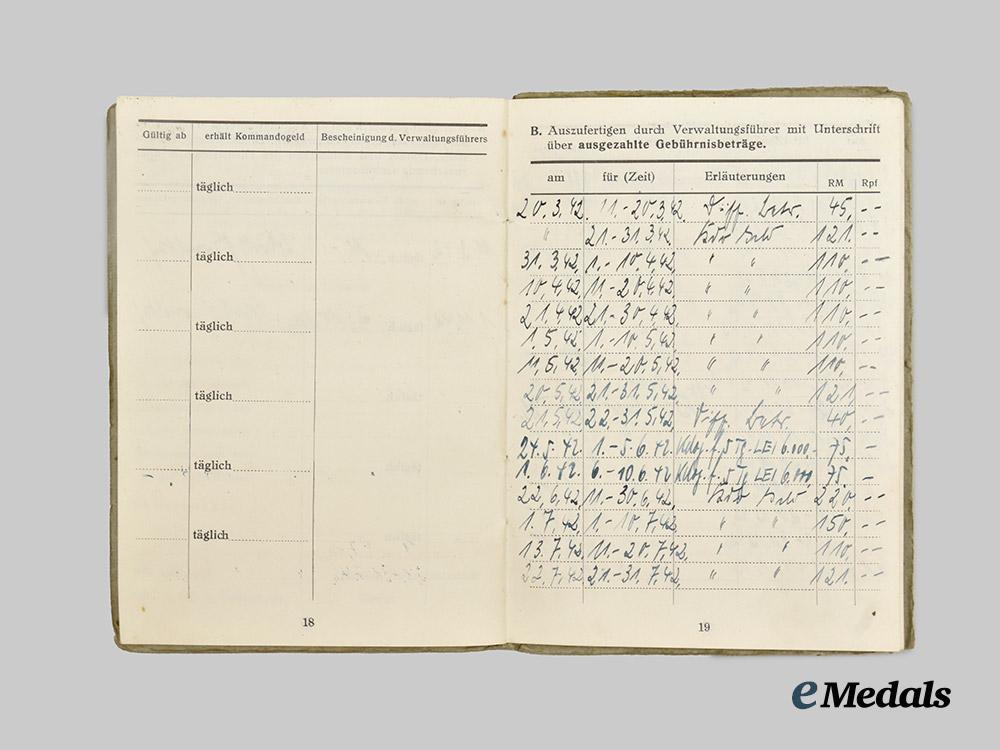 Gültig ab erhält Kommandogeld Bescheinigung d. Verwaltungsführers
täglich
täglich
täglich
täglich
täglich
täglich
18
B. Auszufertigen durch Verwaltungsführer mit Unterschrift
über ausgezahlte Gebührnisbeträge.
am für (Zeit) Erläuterungen RM Rpf
20.3.42. 11.-20.3.42. Diff. Betr. 45,--
" 21.-31.3.42. Kdo Geld 121.--
31.3.42. 1.-10.4.42. " " 110,--
10.4.42. 11.-20.4.42. " " 110,--
21.4.42. 21.-30.4.42. " " 110,--
1.5.42. 1.-10.5.42. " " 110,--
11.5.42. 11.-20.5.42. " " 110,--
20.5.42. 21.-31.5.42. " " 121,--
21.5.42. 22.-31.5.42. Diff. Betr. 40,--
24.5.42. 1.-5.6.42. f. 5 Tg. LEI 6.000,- 75,-
1.6.42. 6.-10.6.42 f. 5 Tg LEI 6.000, 75,-
22.6.42. 11.-30.6.42. Kdo Geld 220,--
1.7.42. 1.-10.7.42. " " 150,--
13.7.42. 11.-20.7.42. " " 110,--
22.7.42. 21.-31.7.42. " " 121.--
19
eMedals